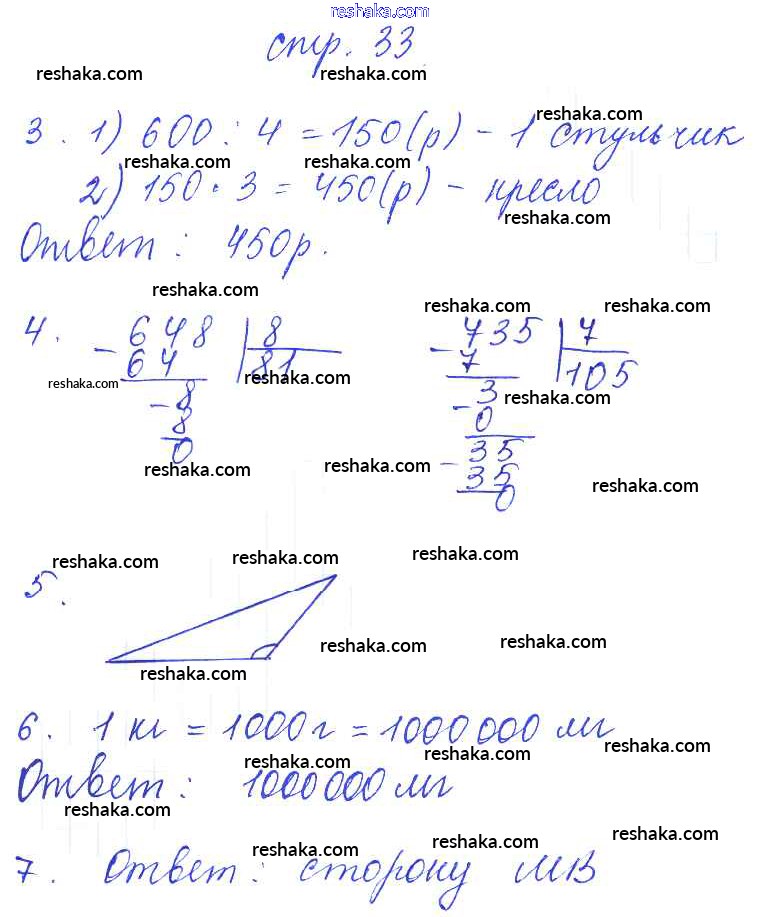 reshaka.com
стр. 33
reshaka.com reshaka.com
reshaka.com
3. 1) 600 : 4 = 150(р) - 1 стульчик
reshaka.com reshaka.com
2) 150 · 3 = 450(р) - кресло
reshaka.com
Ответ: 450р.
reshaka.com reshaka.com reshaka.com
4. - 648 | 8 - 735 | 7
64 81 7 105
reshaka.com reshaka.com reshaka.com
- 8 3
8 - 0
0 35
reshaka.com reshaka.com - 35 reshaka.com
0
reshaka.com reshaka.com reshaka.com
5.
reshaka.com reshaka.com
reshaka.com
6. 1 кг = 1000 г = 1000 000 мг
reshaka.com reshaka.com reshaka.com
Ответ: 1000 000 мг
reshaka.com
reshaka.com reshaka.com reshaka.com
7. Ответ: сторону МВ